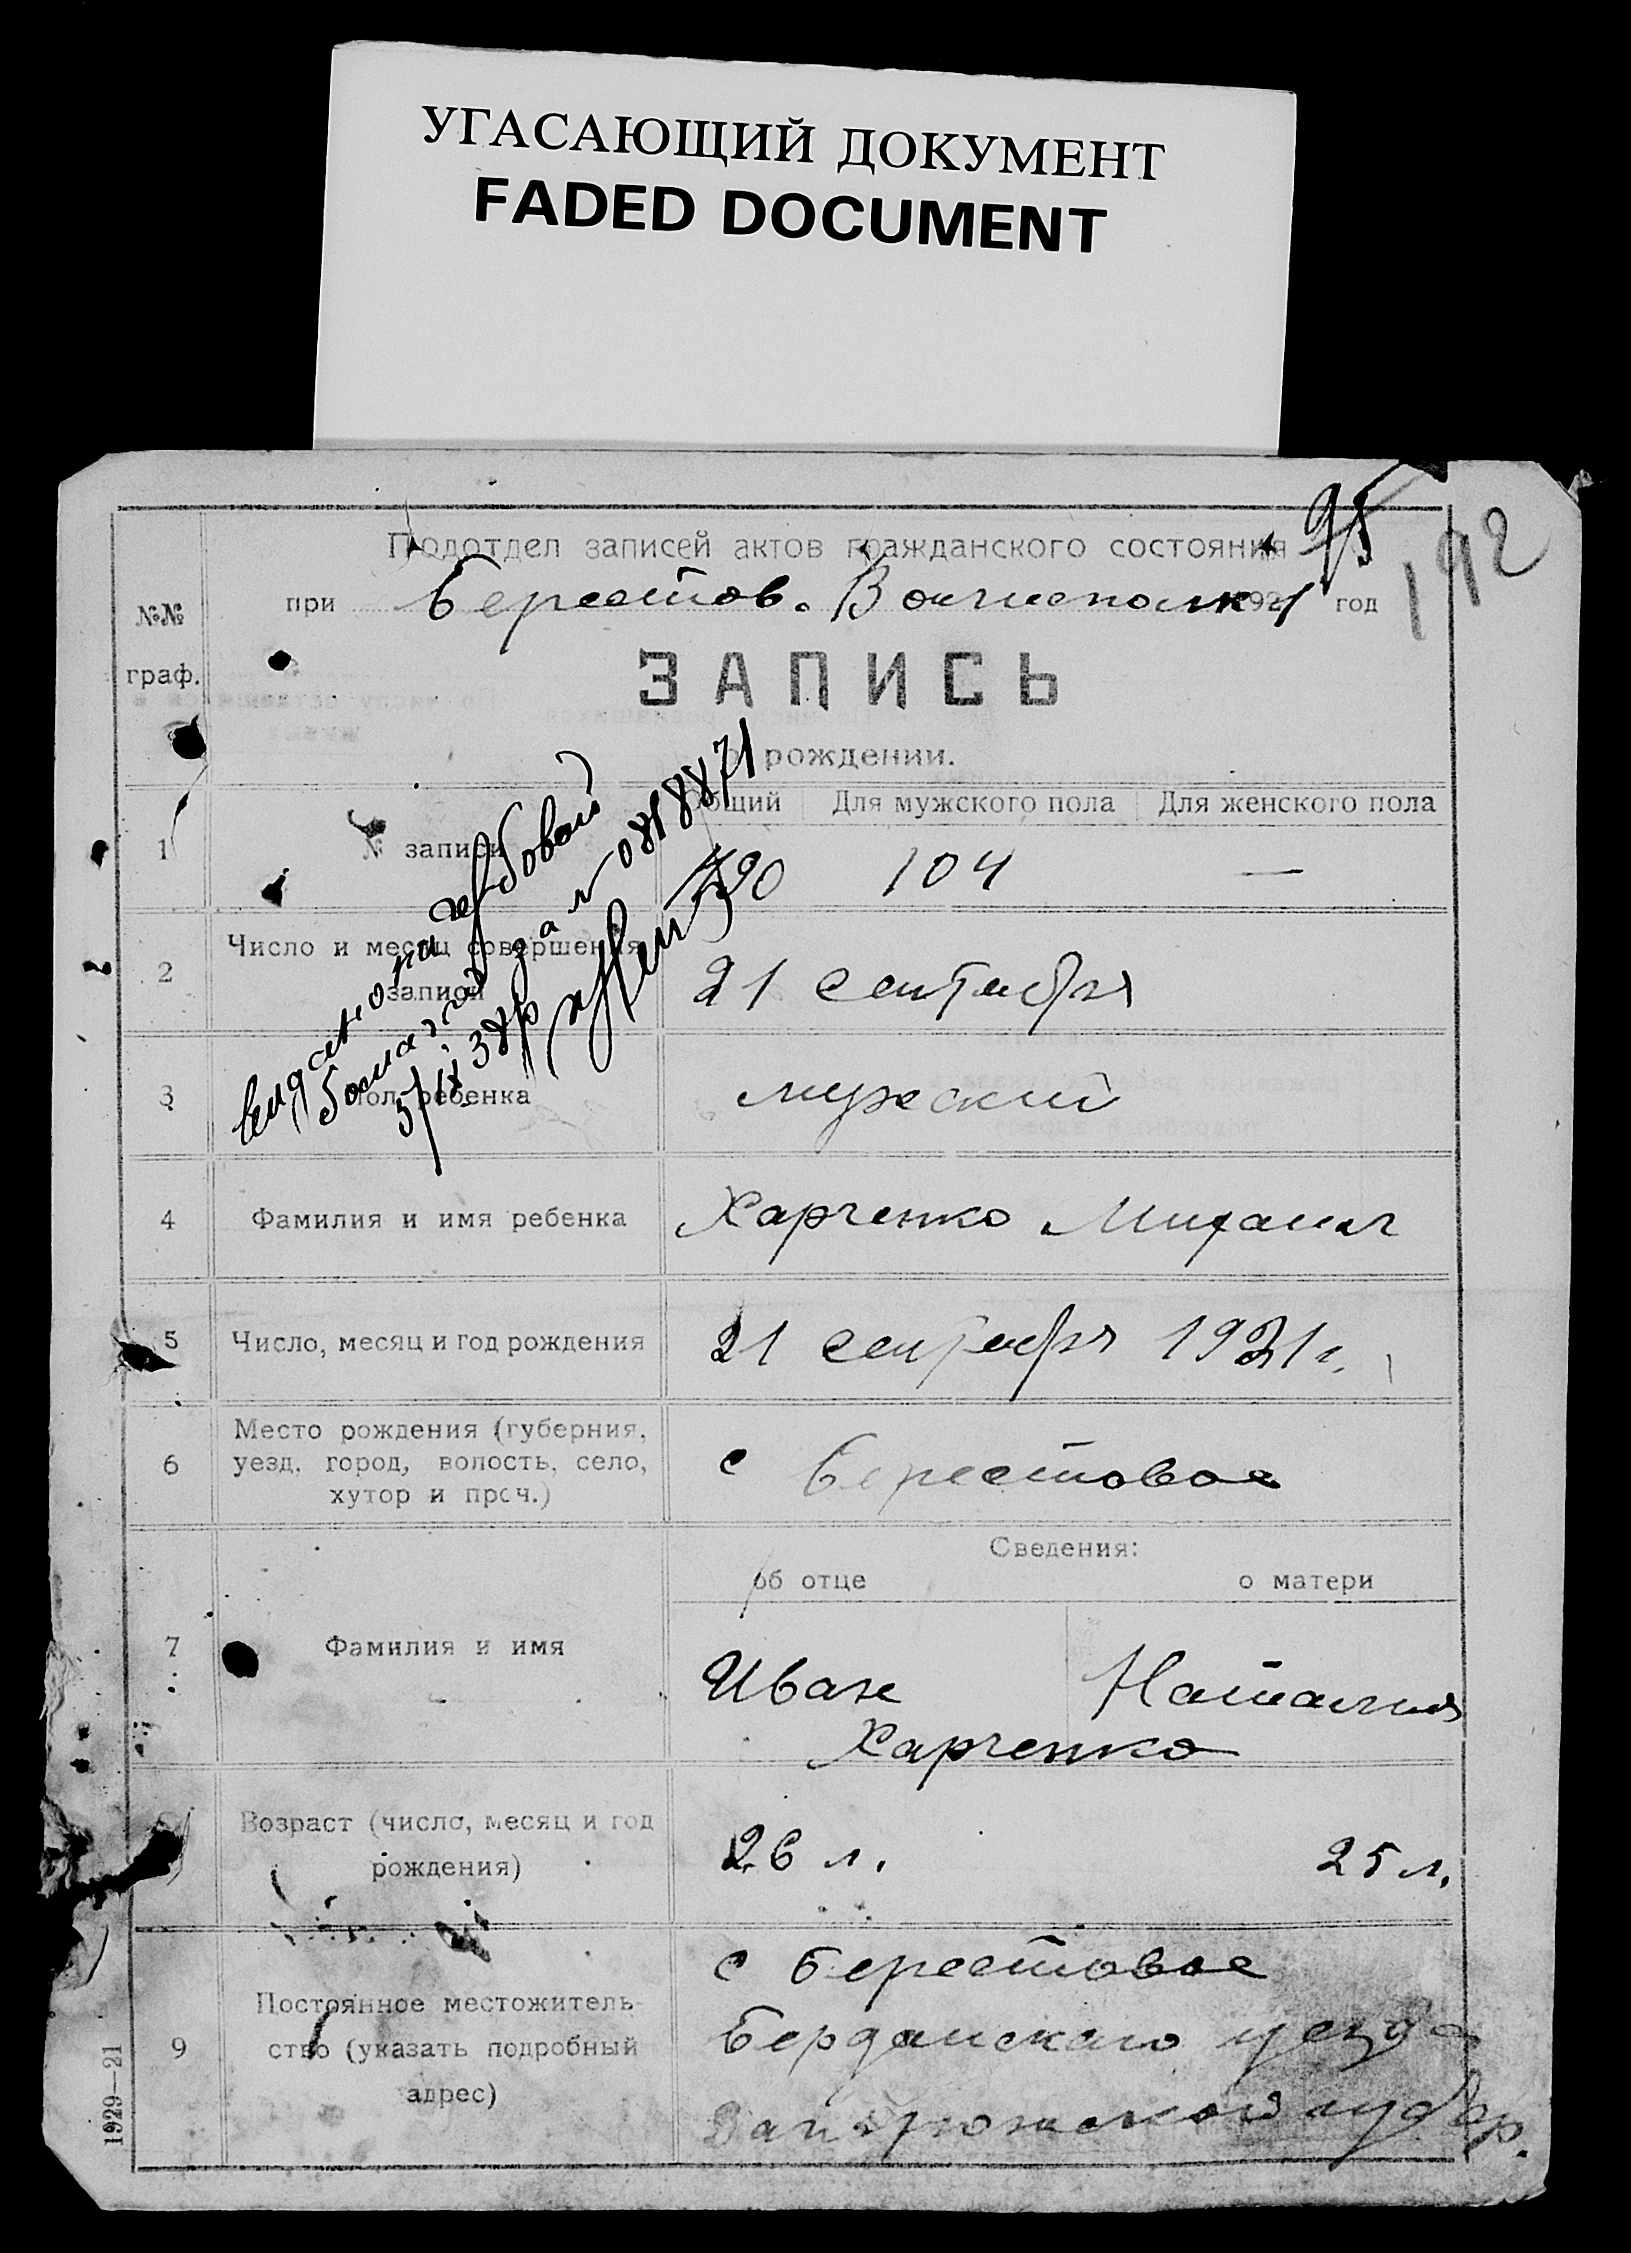 УГАСАЮЩИЙ ДОКУМЕНТ
FADED DOCUMENT
95
192
Подотдел записей актов гражданского состояния
при Берестов. Волисполк 1921 год
№№ граф.
ЗАПИСЬ
о рождении.
Общий Для мужского пола Для женского пола
1 № записи 190 104 —
выдано на гербовой
бомаге за № 0818871
5/IX 38 р
2 Число и месяц совершения
записи
21 сентября
3 Пол ребенка мужеский
4 Фамилия и имя ребенка Харченко Михаил
5 Число, месяц и год рождения 21 сентября 1921 г.
6 Место рождения (губерния,
уезд, город, волость, село,
хутор и проч.)
с Берестовое
Сведения:
об отце о матери
7 Фамилия и имя Иван Наталия
Харченко
Возраст (число, месяц и год
рождения)
26 л. 25 л.
9 Постоянное местожитель-
ство (указать подробный
адрес)
с Берестовое
Бердянскаго уезда
Запорожской губер.
1929—21